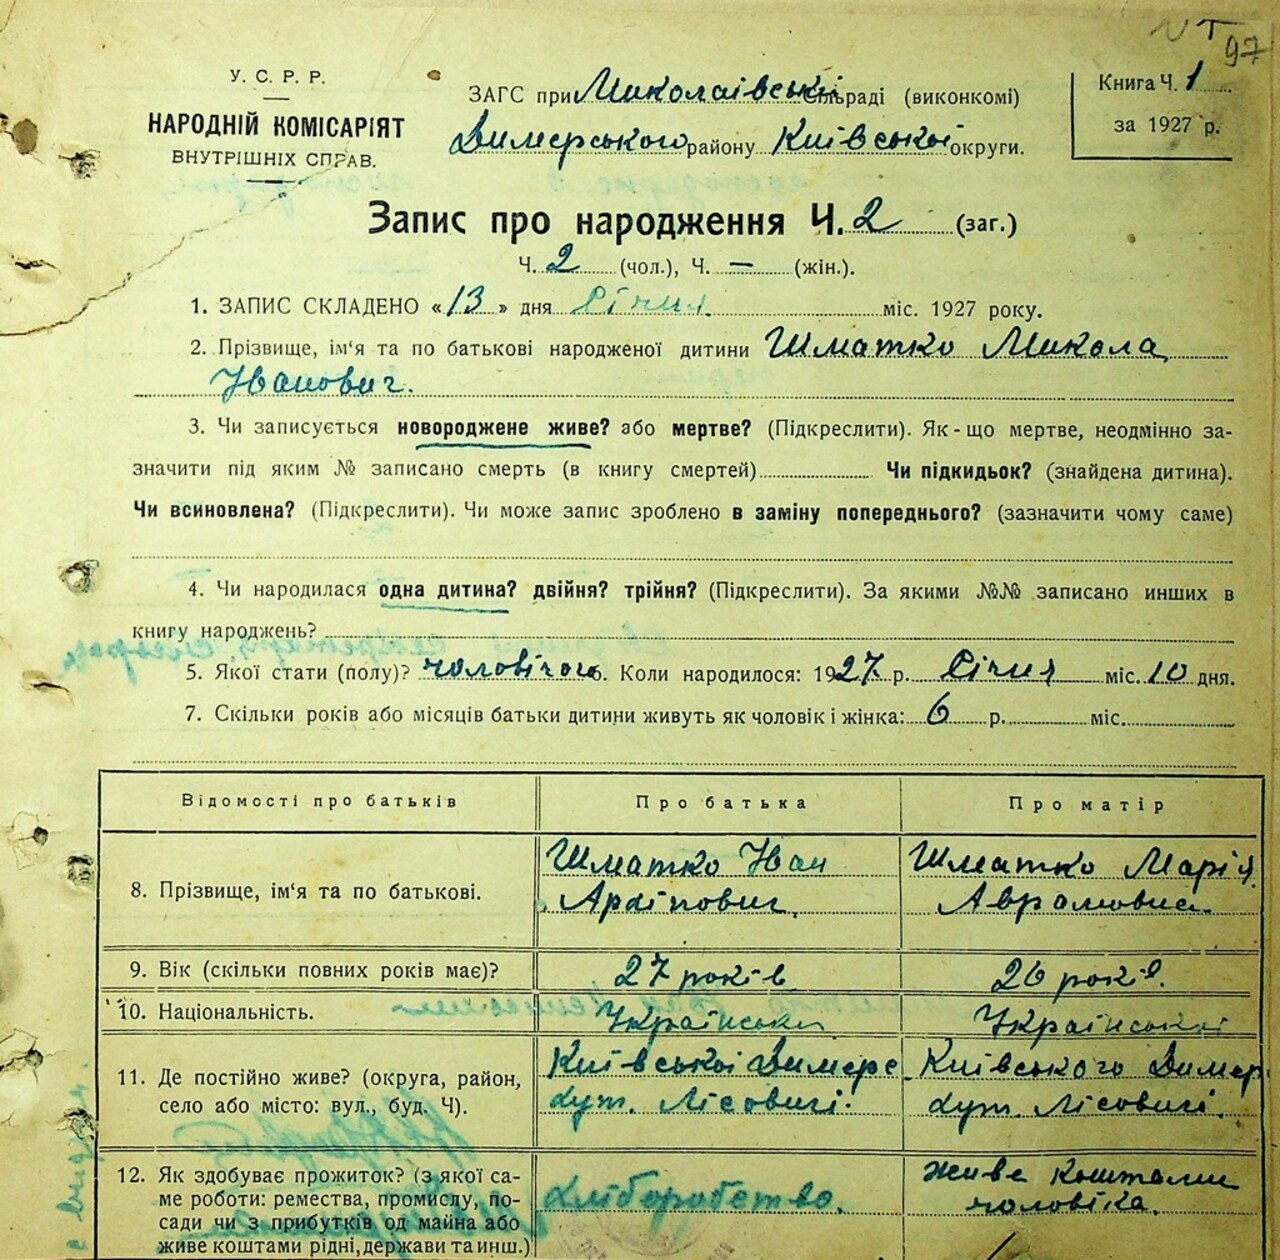 97
У. С. Р. Р.
НАРОДНІЙ КОМІСАРІЯТ
ВНУТРІШНІХ СПРАВ.
ЗАГС при Миколаівські сільраді (виконкомі)
Димерського району Київської округи.
Книга Ч. 1
за 1927 р.
Запис про народження Ч. 2 (заг.)
Ч. 2 (чол.), Ч. — (жін.).
1. ЗАПИС СКЛАДЕНО «13» дня Січня міс. 1927 року.
2. Прізвище, ім‘я та по батькові народженої дитини Шматко Микола
Іванович.
3. Чи записується новороджене живе? або мертве? (Підкреслити). Як-що мертве, неодмінно за-
значити під яким № записано смерть (в книгу смертей) Чи підкидьок? (знайдена дитина).
Чи всиновлена? (Підкреслити). Чи може запис зроблено в заміну попереднього? (зазначити чому саме)
4. Чи народилася одна дитина? двійня? трійня? (Підкреслити). За якими №№ записано инших в
книгу народжень?
5. Якої стати (полу)? чоловічої. Коли народилося: 1927 р. Січня міс. 10 дня.
7. Скільки років або місяців батьки дитини живуть як чоловік і жінка: 6 р. міс.
Відомості про батьків Про батька Про матір
8. Прізвище, ім‘я та по батькові. Шматко Іван Архіпович. Шматко Марія Аврамовна.
9. Вік (скільки повних років має)? 27 років 26 років.
10. Національність. Українськи Українські
11. Де постійно живе? (округа, район, Київської Димерс Київського Димер
село або місто: вул., буд. Ч). хут. Лісовичі. хут. Лісовичі.
12. Як здобуває прожиток? (з якої са- живе коштами
ме роботи: ремества, промислу, по- хліборобство. чоловіка.
сади чи з прибутків од майна або
живе коштами рідні, держави та инш.)